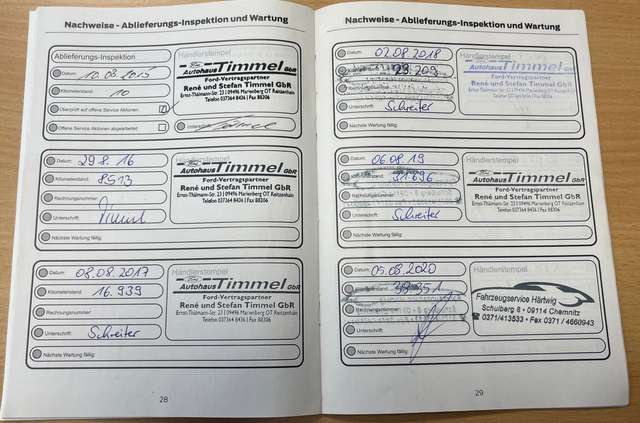 Nachweise - Ablieferungs-Inspektion und Wartung
Ablieferungs-Inspektion
Händlerstempel
Datum: 10.08.2015
Kilometerstand: 10
Überprüft auf offene Service Aktionen:
Offene Service Aktionen abgearbeitet:
Unterschrift:
Ford
Autohaus Timmel GbR
Ford-Vertragspartner
René und Stefan Timmel GbR
Ernst-Thälmann-Str. 23 | 09496 Marienberg OT Reitzenhain
Telefon 037364 8436 | Fax 88206
Datum: 29.8.16
Kilometerstand: 8513
Rechnungsnummer:
Unterschrift: Timmel
Nächste Wartung fällig:
Händlerstempel
Ford
Autohaus Timmel GbR
Ford-Vertragspartner
René und Stefan Timmel GbR
Ernst-Thälmann-Str. 23 | 09496 Marienberg OT Reitzenhain
Telefon 037364 8436 | Fax 88206
Datum: 08.08.2017
Kilometerstand: 16.939
Rechnungsnummer:
Unterschrift: Schreiter
Nächste Wartung fällig:
Händlerstempel
Ford
Autohaus Timmel GbR
Ford-Vertragspartner
René und Stefan Timmel GbR
Ernst-Thälmann-Str. 23 | 09496 Marienberg OT Reitzenhain
Telefon 037364 8436 | Fax 88206
28
Nachweise - Ablieferungs-Inspektion und Wartung
Datum: 02.08.2018
Unterschrift: Schreiter
Nächste Wartung fällig:
Händlerstempel
Autohaus Timmel GbR
Ford-Vertragspartner
René und Stefan Timmel GbR
Datum: 06.08.19
Kilometerstand: 31.696
Rechnungsnummer:
Unterschrift: Schreiter
Nächste Wartung fällig:
Händlerstempel
Ford
Autohaus Timmel GbR
Ford-Vertragspartner
René und Stefan Timmel GbR
Ernst-Thälmann-Str. 23 | 09496 Marienberg OT Reitzenhain
Telefon 037364 8436 | Fax 88206
Datum: 05.08.2020
Rechnungsnummer:
Unterschrift:
Nächste Wartung fällig:
Händlerstempel
Fahrzeugservice Härtwig
Schulberg 8 • 09114 Chemnitz
0371/413533 • Fax 0371 / 4660943
29